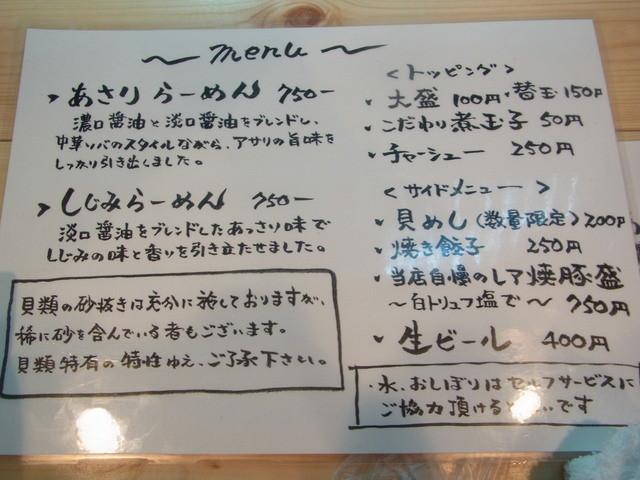 ～ menu ～
あさりらーめん 750ー
濃口醤油と淡口醤油をブレンドし、
中華ソバのスタイルながら、アサリの旨味を
しっかり引き出しました。
しじみらーめん 750ー
淡口醤油をブレンドしたあっさり味で
しじみの味と香りを引き立たせました。
貝類の砂抜きは充分に施しておりますが、
稀に砂を含んでいる者もございます。
貝類特有の特性ゆえ、ご了承下さい。
＜トッピング＞
大盛 100円・替玉150円
こだわり煮玉子 50円
チャーシュー 250円
＜サイドメニュー＞
貝めし(数量限定) 200円
焼き餃子 250円
当店自慢のレア焼豚盛
～白トリュフ塩で～ 750円
生ビール 400円
・水、おしぼりはセルフサービスに
ご協力頂けると です